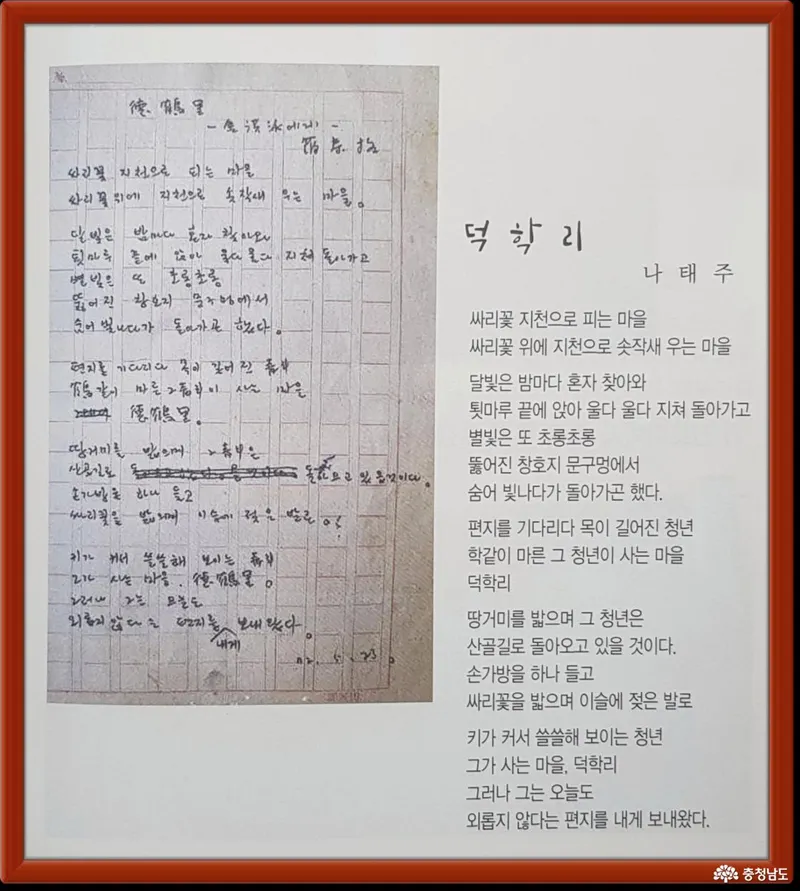 德 鶴 里
싸리꽃 지천으로 피는 마을
싸리꽃 위에 지천으로 솟작새 우는 마을。
달빛은 밤마다 혼자 찾아와
툇마루 끝에 앉아 울다 울다 지쳐 돌아가고
별빛은 또 초롱초롱
뚫어진 창호지 문구멍에서
숨어 빛나다가 돌아가곤 했다。
편지를 기다리다 목이 길어진 靑年
鶴같이 마른 그 靑年이 사는 마을
德鶴里。
땅거미를 밟으며 그 靑年은
산골길로 돌아오고 있을 것이다。
손가방을 하나 들고
싸리꽃을 밟으며 이슬에 젖은 발로。
키가 커서 쓸쓸해 보이는 靑年
그가 사는 마을, 德鶴里。
그러나 그는 오늘도
외롭지 않다는 편지를 내게 보내왔다。
덕학리
나 태 주
싸리꽃 지천으로 피는 마을
싸리꽃 위에 지천으로 솟작새 우는 마을
달빛은 밤마다 혼자 찾아와
툇마루 끝에 앉아 울다 울다 지쳐 돌아가고
별빛은 또 초롱초롱
뚫어진 창호지 문구멍에서
숨어 빛나다가 돌아가곤 했다.
편지를 기다리다 목이 길어진 청년
학같이 마른 그 청년이 사는 마을
덕학리
땅거미를 밟으며 그 청년은
산골길로 돌아오고 있을 것이다.
손가방을 하나 들고
싸리꽃을 밟으며 이슬에 젖은 발로
키가 커서 쓸쓸해 보이는 청년
그가 사는 마을, 덕학리
그러나 그는 오늘도
외롭지 않다는 편지를 내게 보내왔다.
충청남도